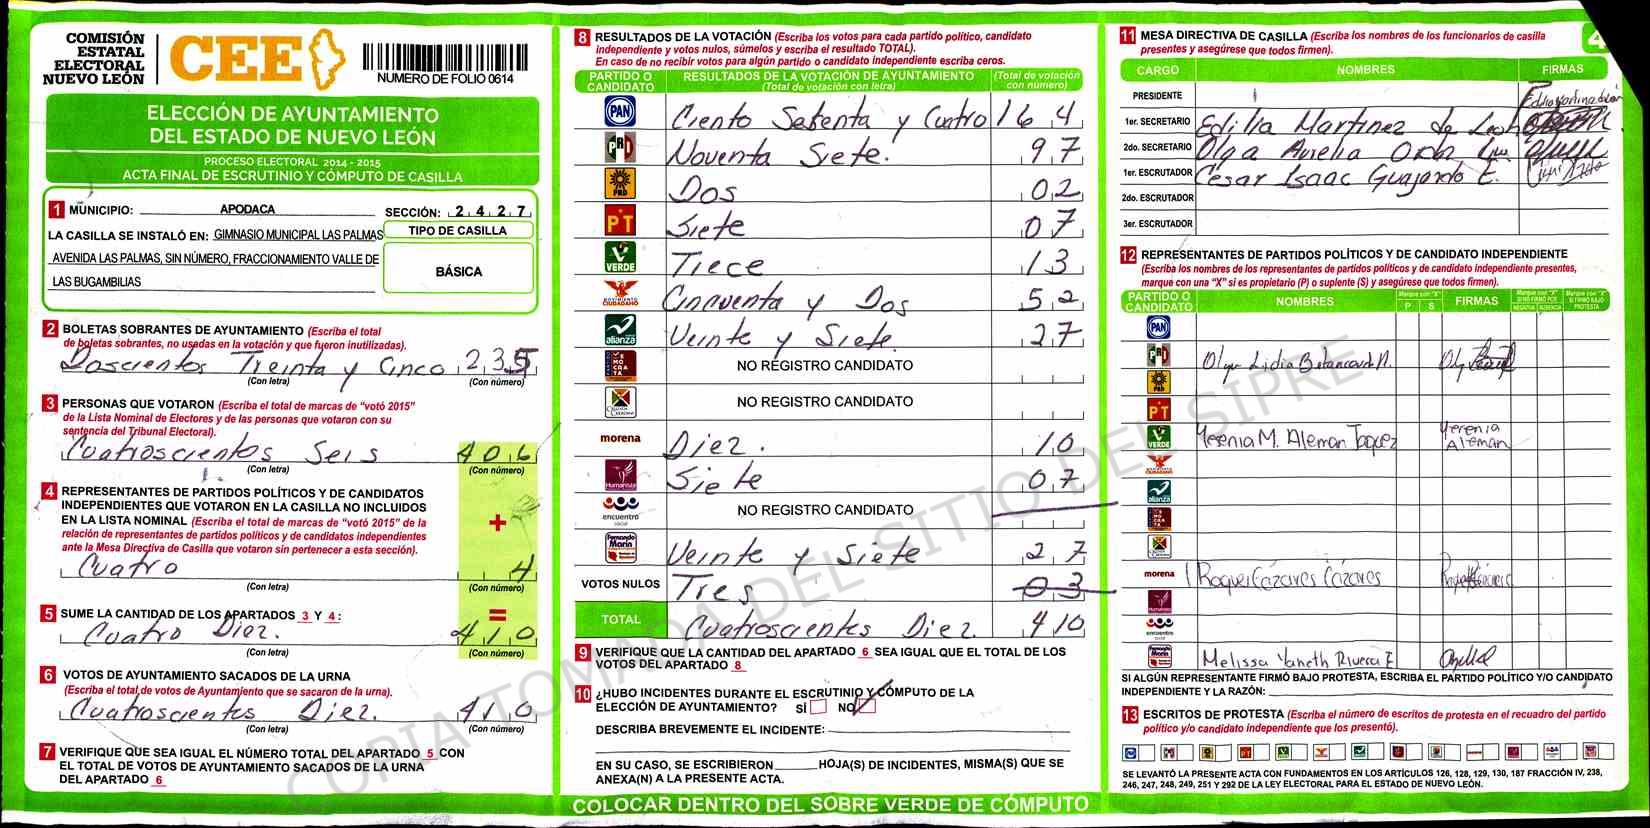 COMISIÓN
ESTATAL
ELECTORAL
NUEVO LEÓN
CEE
NUMERO DE FOLIO 0614
ELECCIÓN DE AYUNTAMIENTO
DEL ESTADO DE NUEVO LEÓN
PROCESO ELECTORAL 2014 - 2015
ACTA FINAL DE ESCRUTINIO Y CÓMPUTO DE CASILLA
1 MUNICIPIO: APODACA SECCIÓN: 2 4 2 7
LA CASILLA SE INSTALÓ EN: GIMNASIO MUNICIPAL LAS PALMAS
AVENIDA LAS PALMAS, SIN NÚMERO, FRACCIONAMIENTO VALLE DE
LAS BUGAMBILIAS
TIPO DE CASILLA
BÁSICA
2 BOLETAS SOBRANTES DE AYUNTAMIENTO (Escriba el total
de boletas sobrantes, no usadas en la votación y que fueron inutilizadas).
Doscientos Treinta y Cinco 235
(Con letra) (Con número)
3 PERSONAS QUE VOTARON (Escriba el total de marcas de "votó 2015"
de la Lista Nominal de Electores y de las personas que votaron con su
sentencia del Tribunal Electoral).
Cuatroscientos Seis 406
(Con letra) (Con número)
4 REPRESENTANTES DE PARTIDOS POLÍTICOS Y DE CANDIDATOS
INDEPENDIENTES QUE VOTARON EN LA CASILLA NO INCLUIDOS
EN LA LISTA NOMINAL (Escriba el total de marcas de "votó 2015" de la
relación de representantes de partidos políticos y de candidatos independientes
ante la Mesa Directiva de Casilla que votaron sin pertenecer a esta sección).
+
Cuatro 4
(Con letra) (Con número)
5 SUME LA CANTIDAD DE LOS APARTADOS 3 Y 4: =
Cuatro Diez. 410
(Con letra) (Con número)
6 VOTOS DE AYUNTAMIENTO SACADOS DE LA URNA
(Escriba el total de votos de Ayuntamiento que se sacaron de la urna).
Cuatroscientos Diez. 410
(Con letra) (Con número)
7 VERIFIQUE QUE SEA IGUAL EL NÚMERO TOTAL DEL APARTADO 5 CON
EL TOTAL DE VOTOS DE AYUNTAMIENTO SACADOS DE LA URNA
DEL APARTADO 6
8 RESULTADOS DE LA VOTACIÓN (Escriba los votos para cada partido político, candidato
independiente y votos nulos, súmelos y escriba el resultado TOTAL).
En caso de no recibir votos para algún partido o candidato independiente escriba ceros.
PARTIDO O CANDIDATO RESULTADOS DE LA VOTACIÓN DE AYUNTAMIENTO (Total de votación con letra) (Total de votación con número)
PAN Ciento Setenta y Cuatro 164
PRI Noventa Siete. 97
PRD Dos 02
PT Siete 07
VERDE Tiece 13
MOVIMIENTO CIUDADANO Cincuenta y Dos 52
alianza Veinte y Siete. 27
NO REGISTRO CANDIDATO
NO REGISTRO CANDIDATO
morena Diez. 10
Humanista Siete 07
encuentro social NO REGISTRO CANDIDATO
Fernando Marín Veinte y Siete 27
VOTOS NULOS Tres 03
TOTAL Cuatroscientos Diez. 410
9 VERIFIQUE QUE LA CANTIDAD DEL APARTADO 6 SEA IGUAL QUE EL TOTAL DE LOS
VOTOS DEL APARTADO 8
10 ¿HUBO INCIDENTES DURANTE EL ESCRUTINIO Y CÓMPUTO DE LA
ELECCIÓN DE AYUNTAMIENTO? SÍ NO
DESCRIBA BREVEMENTE EL INCIDENTE:
EN SU CASO, SE ESCRIBIERON HOJA(S) DE INCIDENTES, MISMA(S) QUE SE
ANEXA(N) A LA PRESENTE ACTA.
COLOCAR DENTRO DEL SOBRE VERDE DE CÓMPUTO
11 MESA DIRECTIVA DE CASILLA (Escriba los nombres de los funcionarios de casilla
presentes y asegúrese que todos firmen).
4
CARGO NOMBRES FIRMAS
PRESIDENTE
1er. SECRETARIO Edilia Martinez de Leon
2do. SECRETARIO Olga Aurelia
1er. ESCRUTADOR Cesar Isaac Guajardo E.
2do. ESCRUTADOR
3er. ESCRUTADOR
12 REPRESENTANTES DE PARTIDOS POLÍTICOS Y DE CANDIDATO INDEPENDIENTE
(Escriba los nombres de los representantes de partidos políticos y de candidato independiente presentes,
marque con una "X" si es propietario (P) o suplente (S) y asegúrese que todos firmen).
PARTIDO O CANDIDATO NOMBRES Marque con "X" P S FIRMAS Marque con "X" SI NO FIRMÓ POR NEGATIVA AUSENCIA Marque con "X" SI FIRMÓ BAJO PROTESTA
PAN
PRI Lidia Betancourt
PRD
PT
VERDE Yesenia M. Aleman Yesenia Aleman
MOVIMIENTO CIUDADANO
alianza
morena Raquel Cázares Cázares
Humanista
encuentro social
Melissa Yaneth Rivera E
SI ALGÚN REPRESENTANTE FIRMÓ BAJO PROTESTA, ESCRIBA EL PARTIDO POLÍTICO Y/O CANDIDATO
INDEPENDIENTE Y LA RAZÓN:
13 ESCRITOS DE PROTESTA (Escriba el número de escritos de protesta en el recuadro del partido
político y/o candidato independiente que los presentó).
SE LEVANTÓ LA PRESENTE ACTA CON FUNDAMENTOS EN LOS ARTÍCULOS 126, 128, 129, 130, 187 FRACCIÓN IV, 238,
246, 247, 248, 249, 251 Y 292 DE LA LEY ELECTORAL PARA EL ESTADO DE NUEVO LEÓN.
COPIA TOMADA DEL SITIO DEL SIPRE